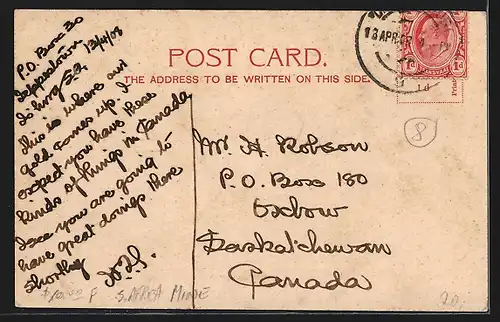 P.O. Box 30
13/4/08
This is where our
gold comes up. I
expect you have these
kinds of things in Canada
I see you are going to
have great doings there
shortly
POST CARD.
THE ADDRESS TO BE WRITTEN ON THIS SIDE.
13 APR 08
1d
Mr H. Robson
P.O. Box 180
Oxbow
Saskatchewan
Canada
8
S. AFRICA MINE